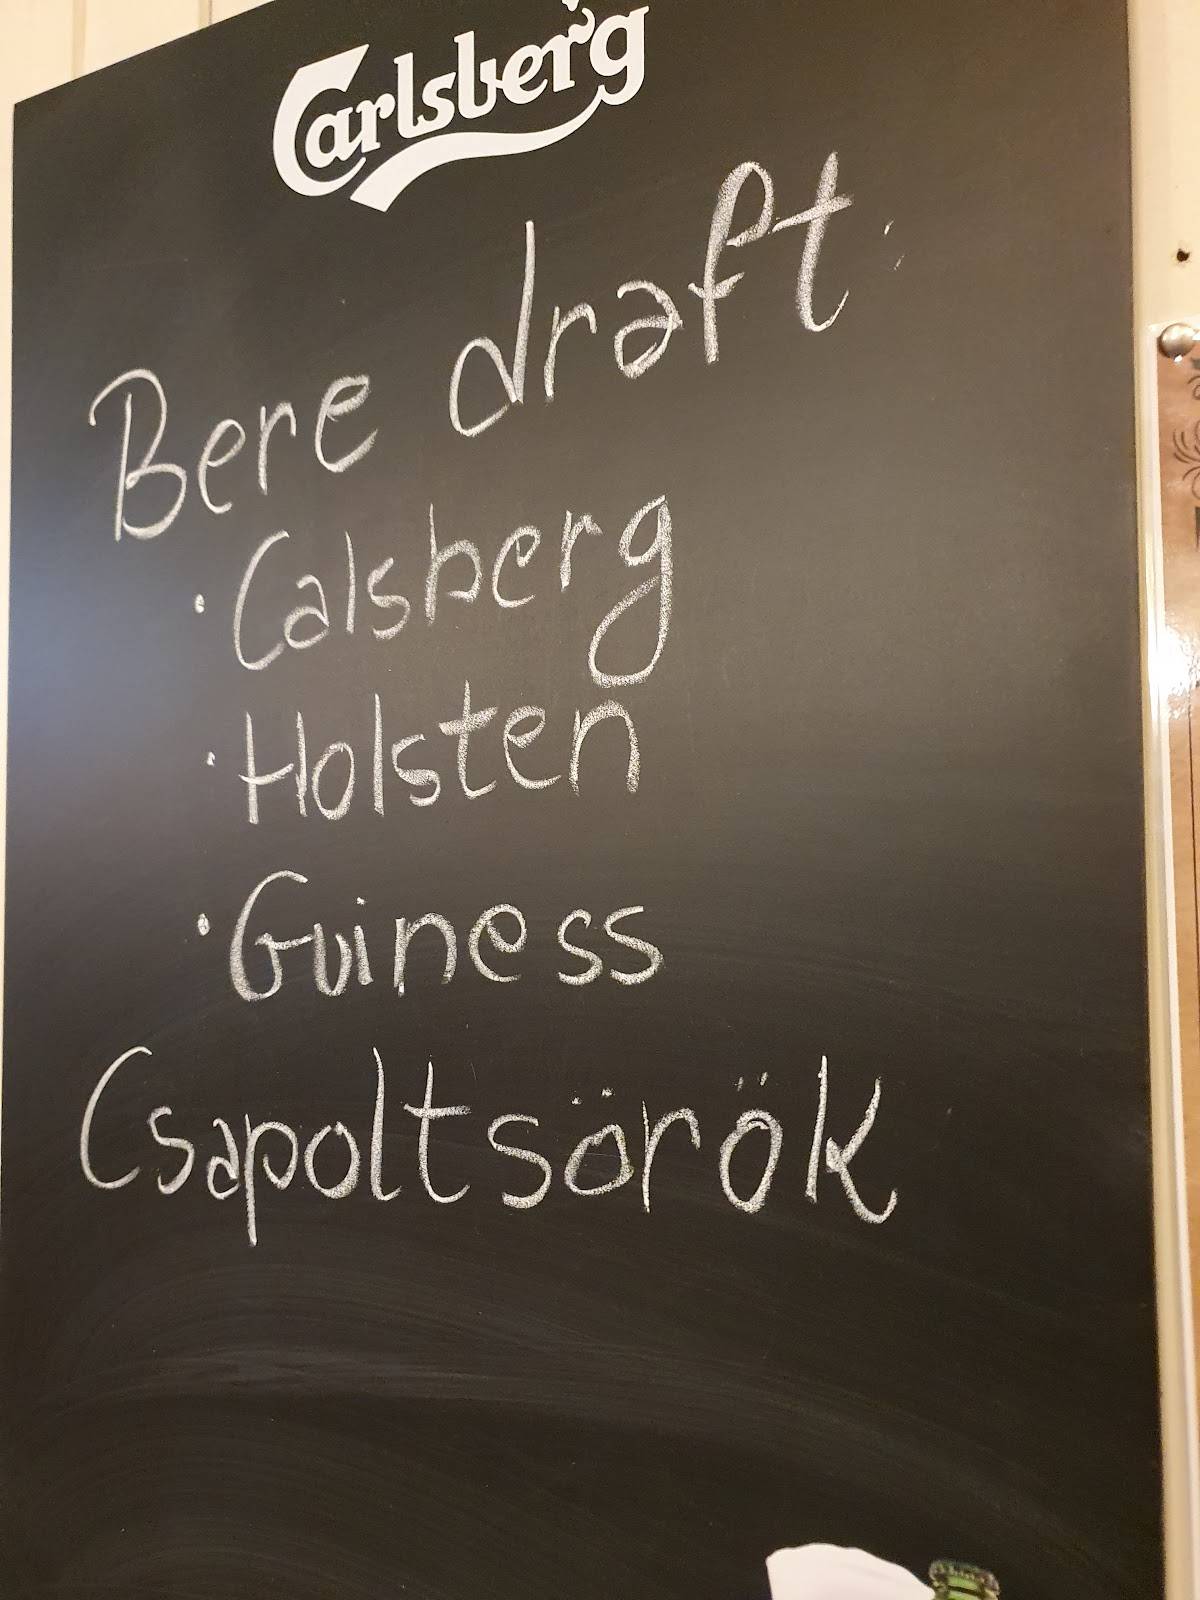 Carlsberg
Bere draft:
· Calsberg
· Holsten
· Guiness
Csapoltsörök